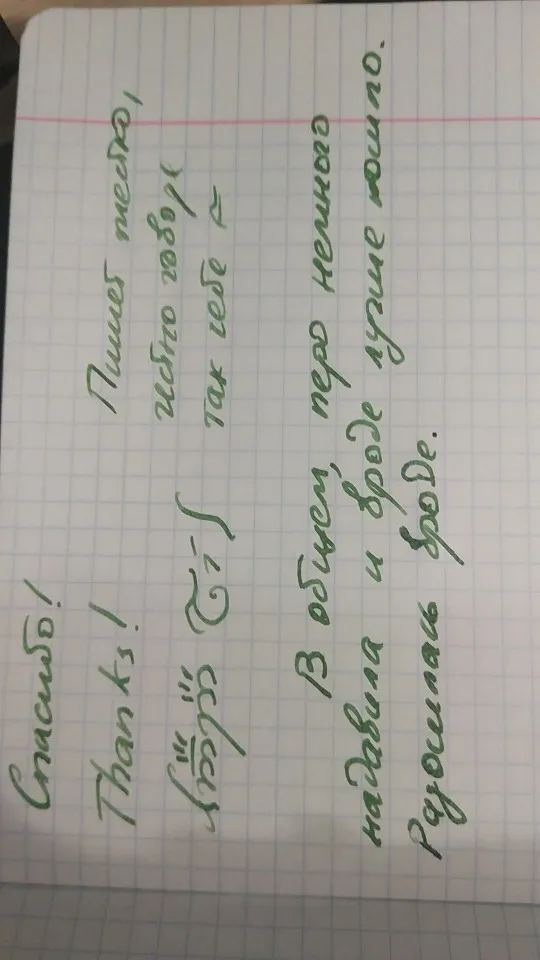 Спасибо!
Thanks!
Пишет жестко,
честно говоря
так себе
В общем, перо немного
надавила и вроде лучше пошло.
Разошлась вроде.